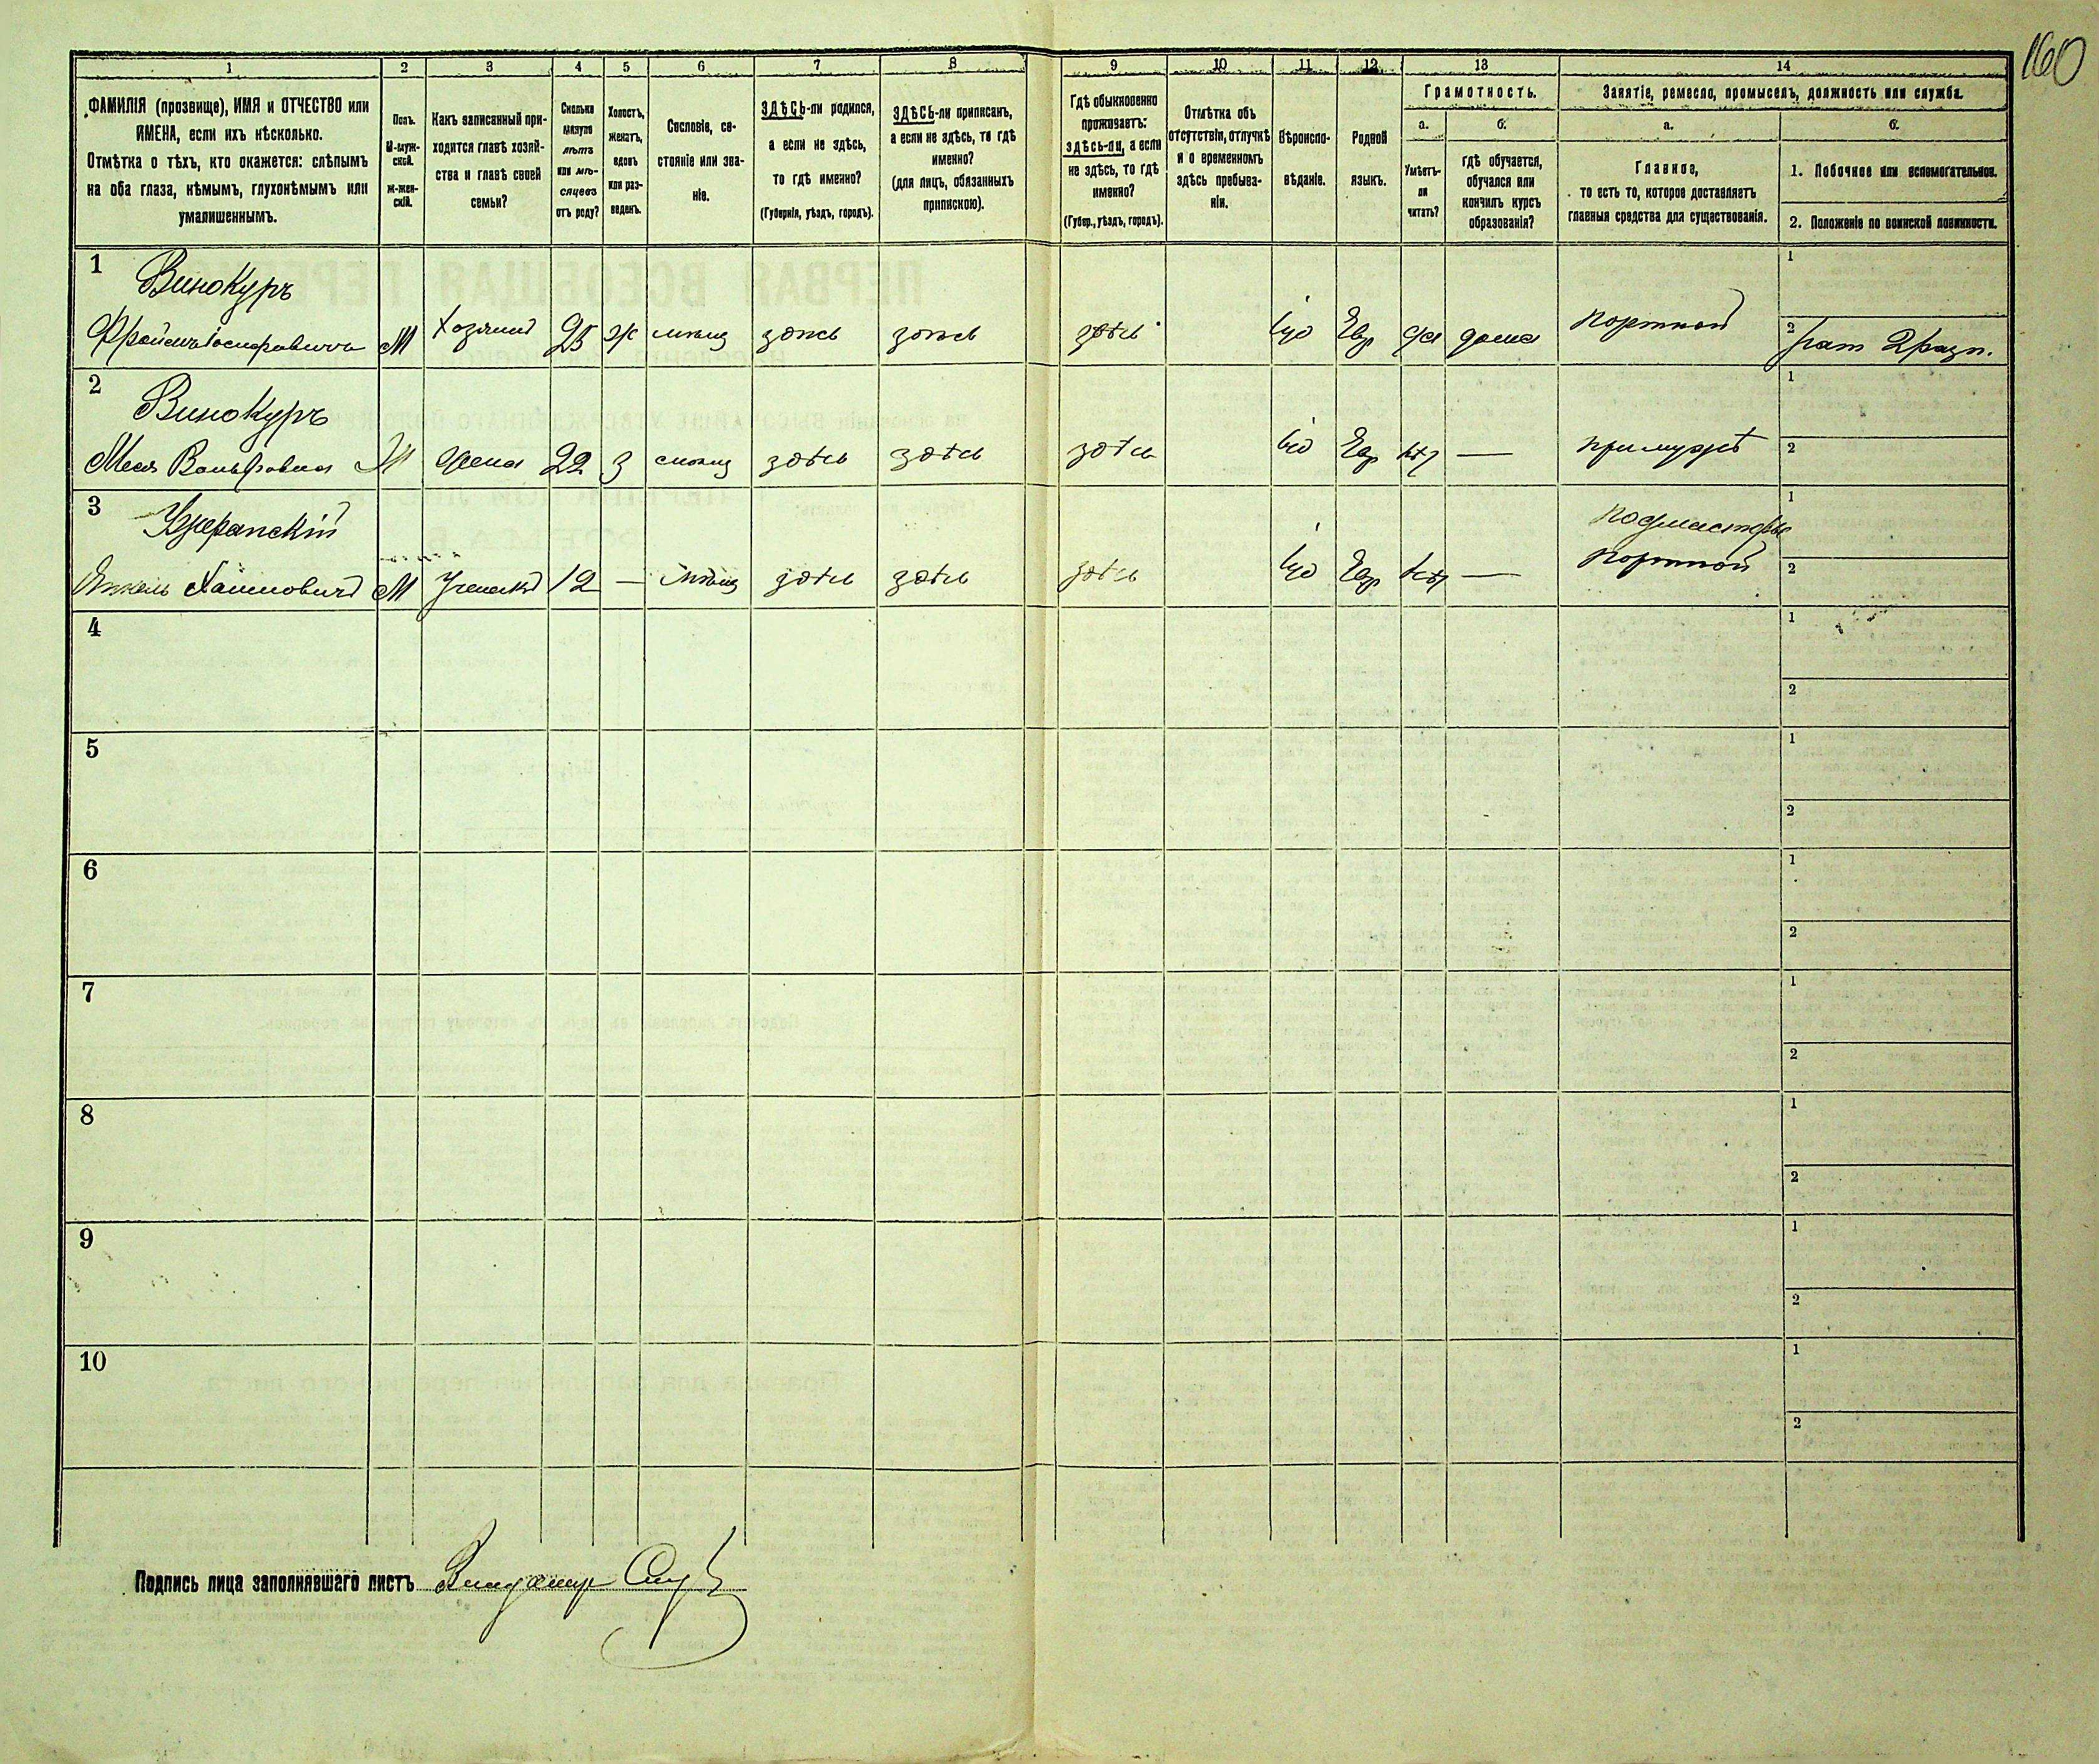 160
1 2 3 4 5 6 7 8 9 10 11 12 13 14
ФАМИЛІЯ (прозвище), ИМЯ и ОТЧЕСТВО или
ИМЕНА, если ихъ нѣсколько.
Отмѣтка о тѣхъ, кто окажется: слѣпымъ
на оба глаза, нѣмымъ, глухонѣмымъ или
умалишеннымъ.
Полъ.
М-муж-
ской.
Ж-жен-
скій.
Какъ записанный при-
ходится главѣ хозяй-
ства и главѣ своей
семьи?
Сколько
минуло
лѣтъ
или мѣ-
сяцевъ
отъ роду?
Холостъ,
женатъ,
вдовъ
или раз-
веденъ.
Сословіе, со-
стояніе или зва-
ніе.
ЗДѢСЬ-ли родился,
а если не здѣсь,
то гдѣ именно?
(Губернія, уѣздъ, городъ).
ЗДѢСЬ-ли приписанъ,
а если не здѣсь, то гдѣ
именно?
(для лицъ, обязанныхъ
припискою).
Гдѣ обыкновенно
проживаетъ:
здѣсь-ли, а если
не здѣсь, то гдѣ
именно?
(Губер., уѣздъ, городъ).
Отмѣтка объ
отсутствіи, отлучкѣ
и о временномъ
здѣсь пребыва-
ніи.
Вѣроиспо-
вѣданіе.
Родной
языкъ.
Грамотность.
а.
Умѣетъ-
ли
читать?
б.
гдѣ обучается,
обучался или
кончилъ курсъ
образованія?
Занятіе, ремесло, промыселъ, должность или служба.
а.
Главное,
то есть то, которое доставляетъ
главныя средства для существованія.
б.
1. Побочное или вспомогательное.
2. Положеніе по воинской повинности.
1 Винокуръ
М Хозяинъ 25 ж здѣсь здѣсь здѣсь Іуд Евр да дома портной
1
2 рат 2 разр.
2 Винокуръ
Вольфовна Ж жена 22 З здѣсь здѣсь здѣсь Іуд Евр нѣт — при мужѣ
1
2
3
Хаимовичъ М Ученикъ 12 — здѣсь здѣсь здѣсь Іуд Евр нѣт — подмастерье
портной
1
2
4
1
2
5
1
2
6
1
2
7
1
2
8
1
2
9
1
2
10
1
2
Подпись лица заполнявшаго листъ